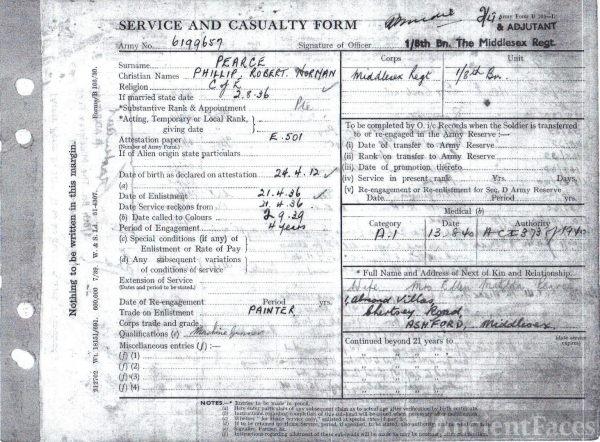 SERVICE AND CASUALTY FORM
Army Form B 103—I.
& ADJUTANT
Army No. 6199657
Signature of Officer
1/8th Bn. The Middlesex Regt.
Surname PEARCE
Christian Names PHILLIP, ROBERT. NORMAN
Religion C of E
If married state date 2.8.36
*Substantive Rank & Appointment Pte
*Acting, Temporary or Local Rank, giving date
Attestation paper E.501
(Number of Army Form.)
If of Alien origin state particulars
Date of birth as declared on attestation 24.4.12
(a)
Date of Enlistment 21.4.36
Date Service reckons from 21.4.36
(b) Date called to Colours 2.9.39
Period of Engagement 4 years
(c) Special conditions (if any) of Enlistment or Rate of Pay
(d) Any subsequent variations of conditions of service
Extension of Service
(Dates and period to be stated.)
Date of Re-engagement Period yrs.
Trade on Enlistment PAINTER
Corps trade and grade
Qualifications (e) Machine Gunner
Miscellaneous entries (f) :—
(f) (1)
(f) (2)
(f) (3)
(f) (4)
Corps
Unit
Middlesex Regt
1/8th Bn.
To be completed by O. i/c Records when the Soldier is transferred to or re-engaged in the Army Reserve :—
(i) Date of transfer to Army Reserve
(ii) Rank on transfer to Army Reserve
(iii) Date of promotion thereto
(iv) Service in present rank Yrs. Days.
(v) Re-engagement or Re-enlistment for Sec. D Army Reserve
Date Period yrs.
Medical (b)
Category
Date
Authority
A.1
13.8.40
ACI 373 of 1940
* Full Name and Address of Next of Kin and Relationship.
Wife Mrs Ellen
Villas,
Chertsey Road
ASHFORD, Middlesex.
Continued beyond 21 years to
(state service expires)
Nothing to be written in this margin.
Forms/B 103/10.
NOTES.—* Entries to be made in pencil.
AncientFaces